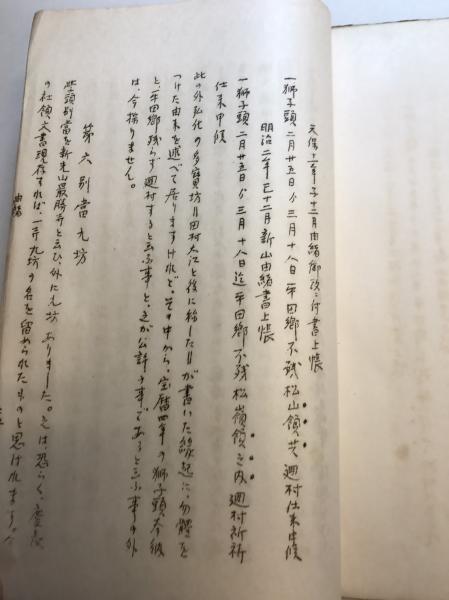 天保十一年子十二月由緒御改ニ付書上帳
一獅子頭二月廿五日ゟ三月十八日平田郷不残松山領共廻村仕来申候
明治二年巳十二月新山由緒書上帳
一獅子頭二月廿五日ゟ三月十八日迄平田郷不残松嶺領之内廻村祈祈
仕来申候
此の外弘化の多寶坊＝田村大江と後に称した＝が書いた縁起に、勿體を
つけた由来を述べて居りますけれど。その中から、宝暦四年の獅子頭
と、平田郷残らず廻村すると云ふ事と、之が公許の事であると云ふ事の外
は、今採りません。
第六別當九坊
別當を新光山最勝寺と云ひ、外に九坊ありました。之は、恐らく、慶長
の社領文書現存すれば、一斉九坊の名を留められたものと思はれます。今
由緒